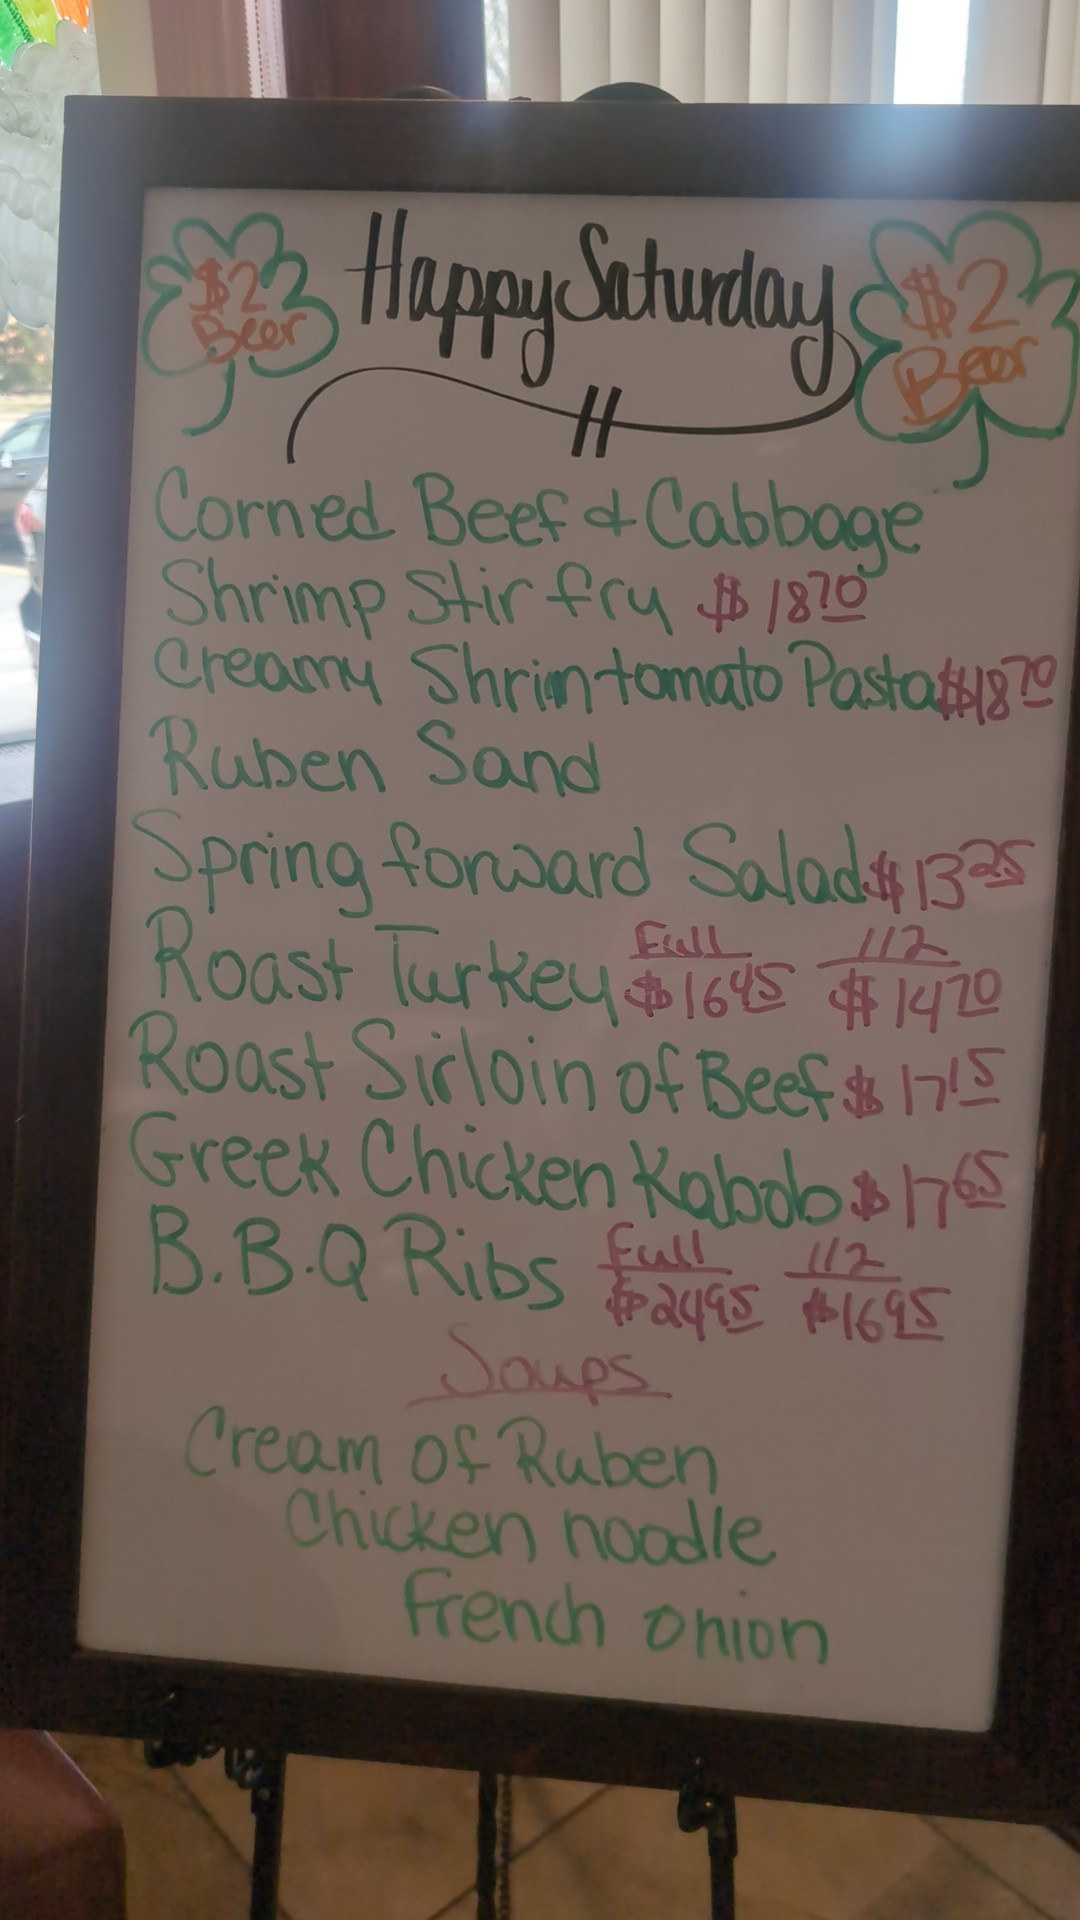 $2 Beer Happy Saturday $2 Beer
Corned Beef & Cabbage
Shrimp Stir fry $18 70
Creamy Shrim tomato Pasta $18 70
Ruben Sand
Spring forward Salad $13 25
Roast Turkey Full $16 45 1/2 $14 70
Roast Sirloin of Beef $17 15
Greek Chicken Kabob $17 65
B.B.Q Ribs Full $24 95 1/2 $16 95
Soups
Cream of Ruben
Chicken noodle
French onion